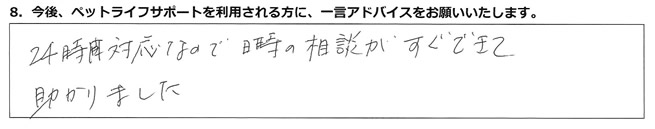 8. 今後、ペットライフサポートを利用される方に、一言アドバイスをお願いいたします。
24時間対応なので日時の相談がすぐできて
助かりました